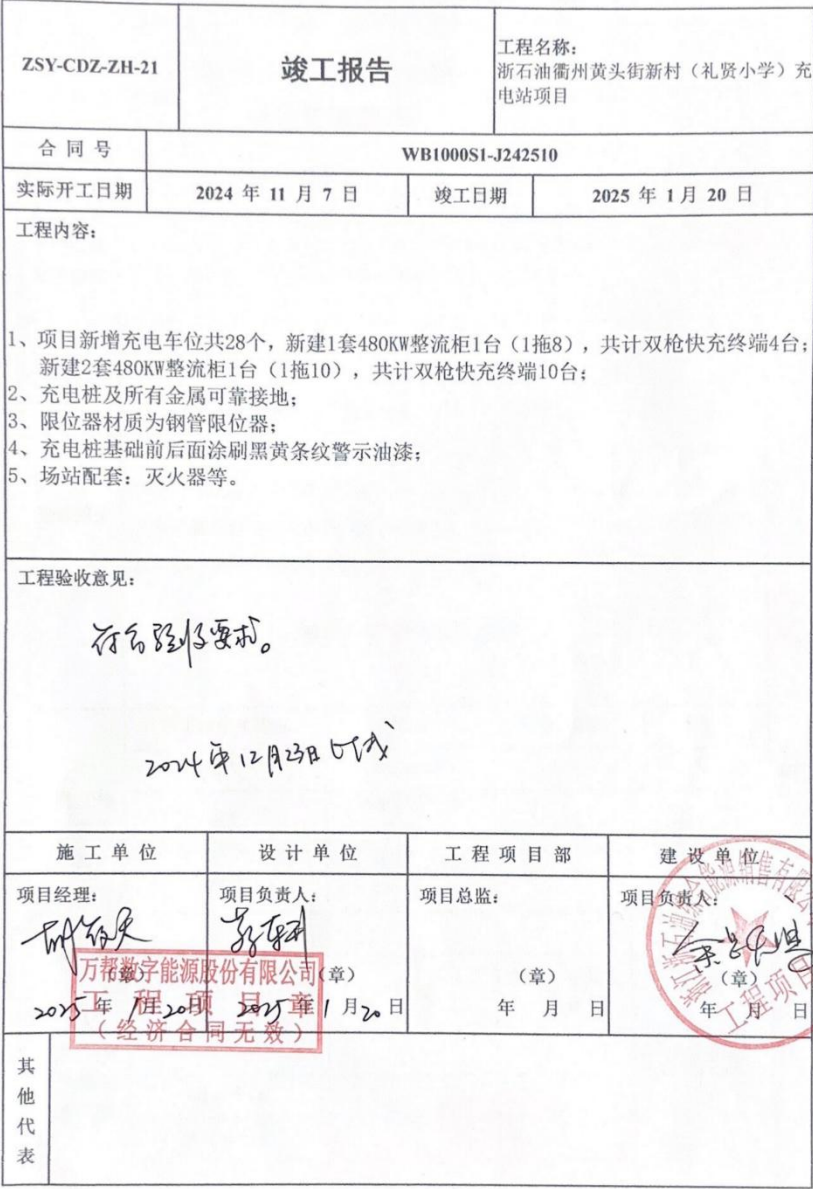 ZSY-CDZ-ZH-21
竣工报告
工程名称：
浙石油衢州黄头街新村（礼贤小学）充
电站项目
合同号
WB1000S1-J242510
实际开工日期
2024 年 11 月 7 日
竣工日期
2025 年 1 月 20 日
工程内容：
1、项目新增充电车位共28个，新建1套480KW整流柜1台（1拖8），共计双枪快充终端4台；
新建2套480KW整流柜1台（1拖10），共计双枪快充终端10台；
2、充电桩及所有金属可靠接地；
3、限位器材质为钢管限位器；
4、充电桩基础前后面涂刷黑黄条纹警示油漆；
5、场站配套：灭火器等。
工程验收意见：
符合验收要求。
2024年12月23日
施工单位
设计单位
工程项目部
建设单位
项目经理：
项目负责人：
项目总监：
项目负责人：
（章）
（章）
（章）
（章）
2025 年 1月20日
2025 年 1 月 20 日
年 月 日
年 月 日
万帮数字能源股份有限公司
工程项目章
（经济合同无效）
浙江浙石油综合能源销售有限公
工程项目
其他代表